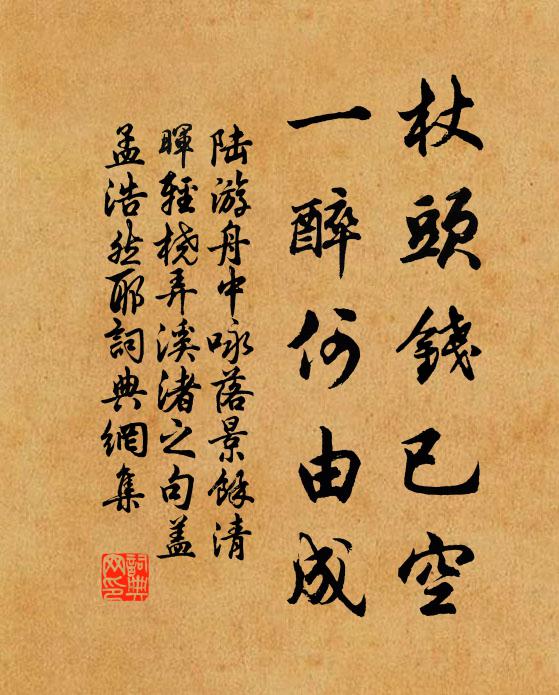 杖頭錢已空
一醉何由成
陆游舟中咏落景餘清
暉輕橈弄溪渚之句盖
孟浩然耶詞典網集
詞典网印